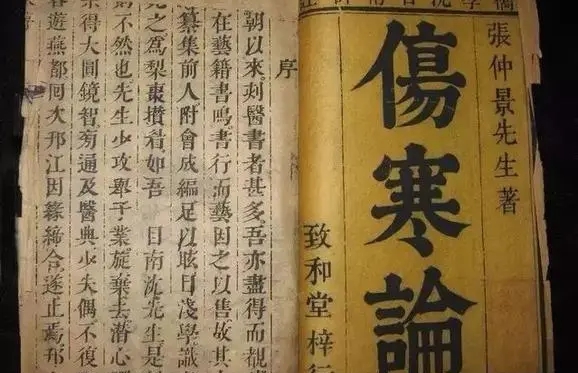 張仲景先生著
傷寒論
致和堂梓行
序
朝以來刻醫書者甚多吾亦盡得而覩
在藝籍書鳴書行而藝因之以售故其
纂集前人附會成編足以眩目淺學識
之爲梨棗攢眉如吾 目南沈先生是
則不然也先生少攻舉子業旋棄去潛心
得大圓鏡智旁通及醫典少失偶不復
客遊燕都囘次邗江因緣締合遂止焉邗